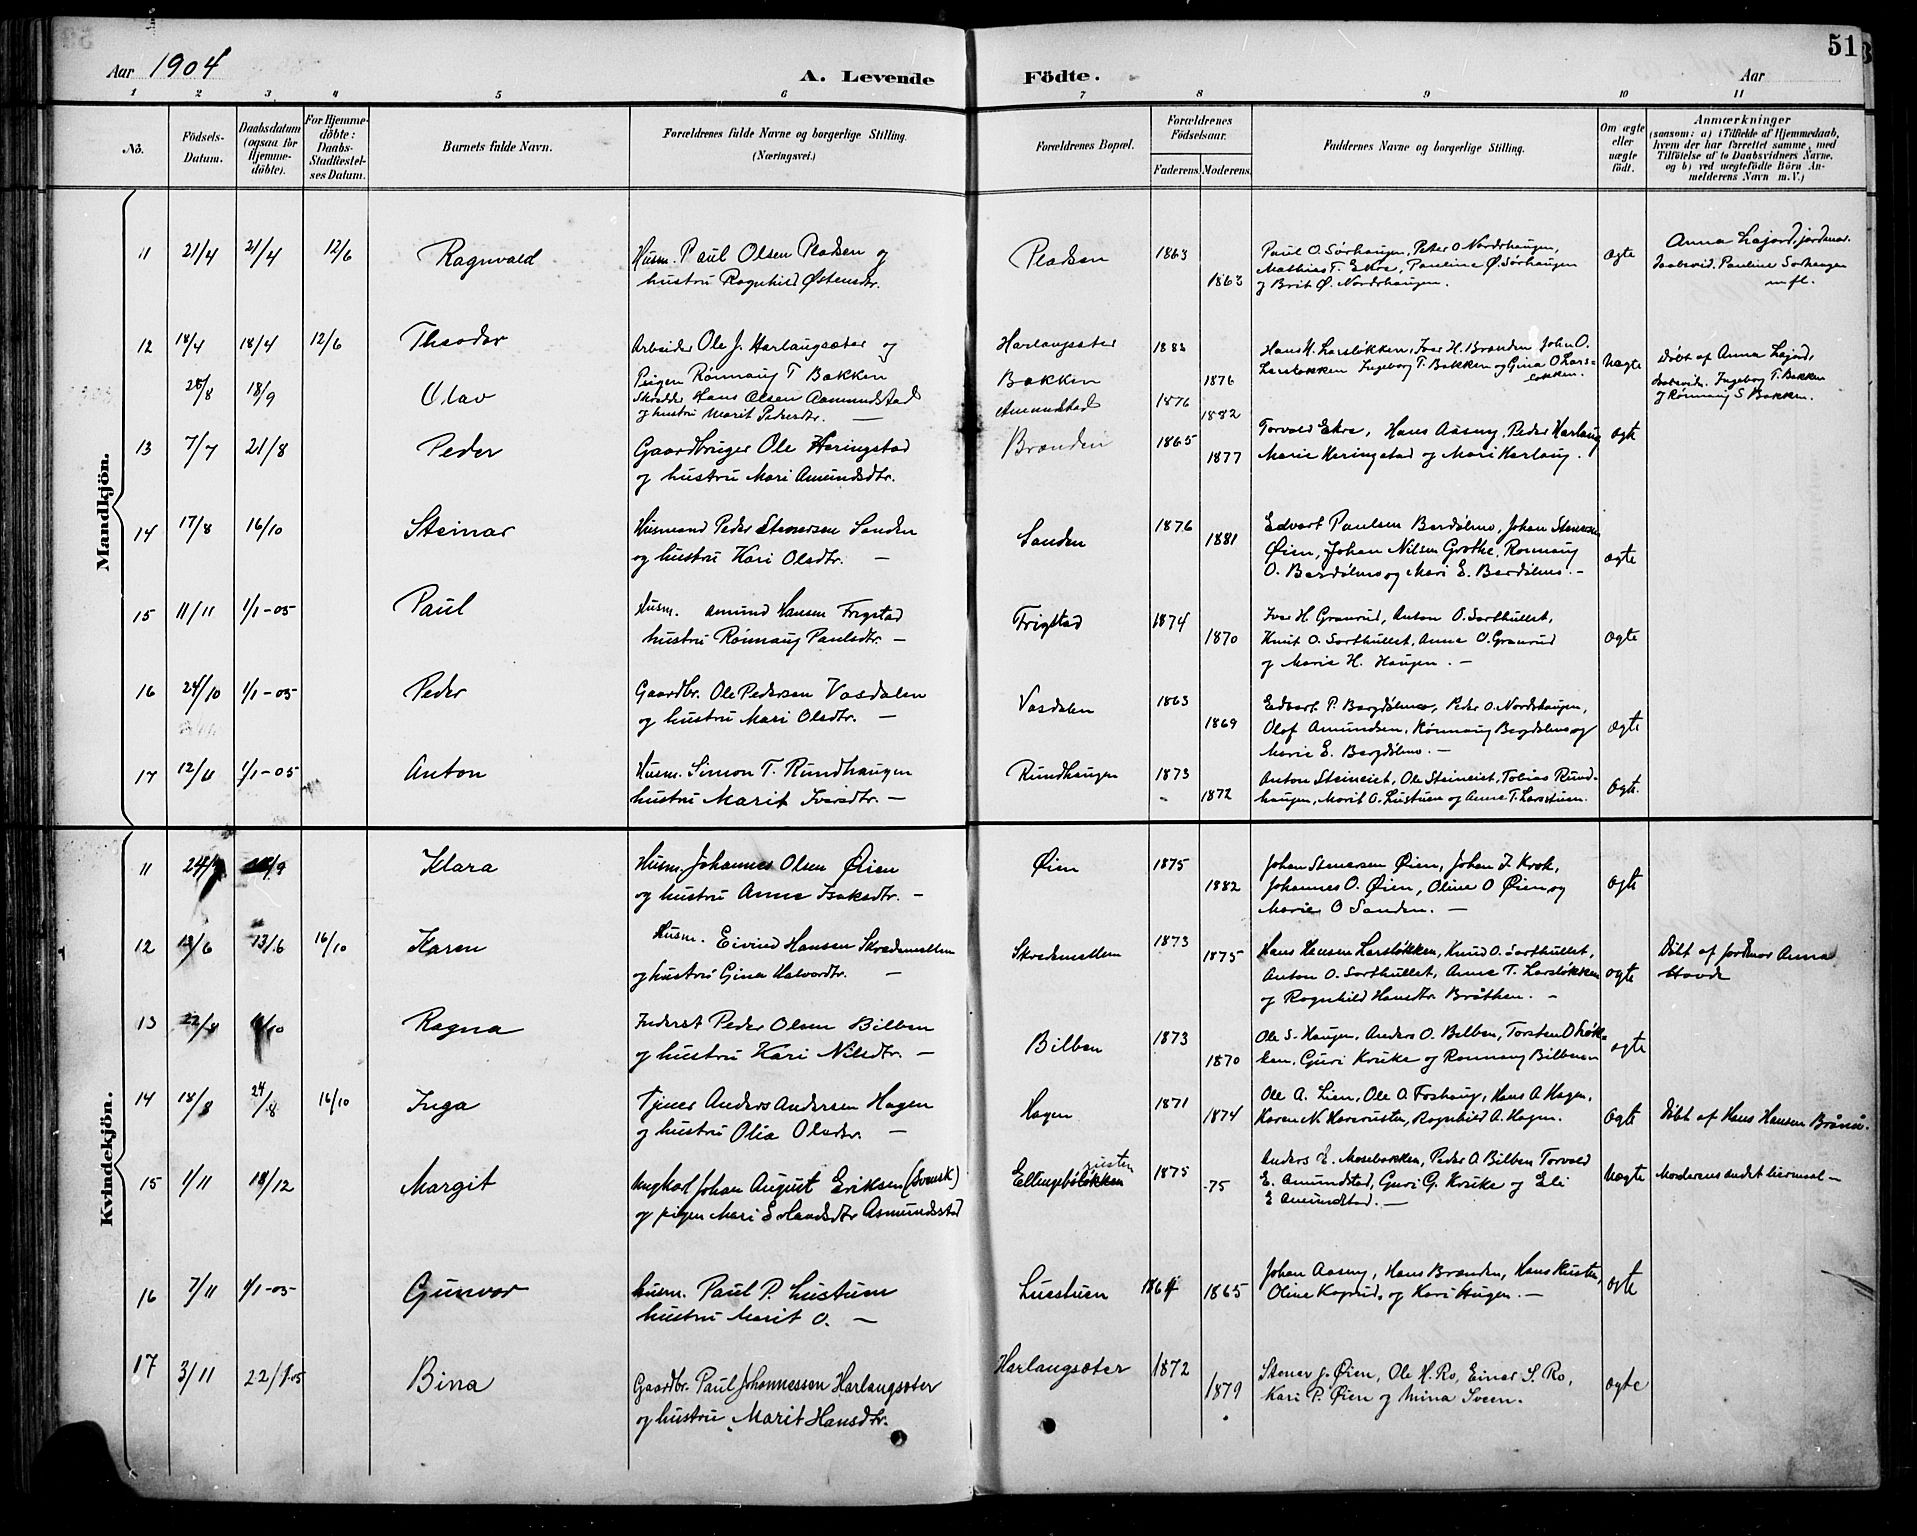 Aar 1904
A. Levende Födte.
Aar
51
1 2 3 4 5 6 7 8 9 10 11
No.
Födsels-Datum.
Daabsdatum (ogsaa for Hjemmedöbte).
For Hjemmedöbte: Daabs-Stadfæstelses Datum.
Barnets fulde Navn.
Forældrenes fulde Navne og borgerlige Stilling. (Næringsvei.)
Forældrenes Bopæl.
Forældrenes Födselsaar.
Faderens. Moderens.
Faddernes Navne og borgerlige Stilling.
Om ægte eller uægte födt.
Anmærkninger
(saasom: a) i Tilfælde af Hjemmedaab, hvem der har forrettet samme, med Tilföielse af to Daabsvidners Navne, og b) ved uægtefödte Börn Anmelderens Navn m. V.)
Mandkjön.
11 21/4 21/4 12/6 Ragnvald Husm. Paul Olsen Pladsen og
hustru Ragnhild Østensdtr.
Pladsen 1863 1863
Paul O. Sørhaugen, Peter O Nordrhaugen,
Mathias T. Ekre, Pauline Ø. Sørhaugen
og Brit Ø. Nordrhaugen.
Ægte
Anna Lajord, jordmor.
Daabsvid. Pauline Sørhaugen
m fl.
12 18/4 18/4 12/6 Theodor Arbeider Ole J. Harlaugsæter og
Pigen Rönnaug T Bakken
Harlaugsæter 1883
Bakken 1876
Hans H. Larsløkken, Ivar H. Branden John O.
Larsløkken Ingeborg T. Bakken og Gina O Larsløkken.
Uægte
Döbt af Anna Lajord,
Daabsvidn. Ingeborg T. Bakken
og Rönnaug S Bakken.
28/8 18/9 Olav
Hans Olsen Aamundstad
og hustru Marit Pedersdtr.
Amundstad 1876 1882
13 7/7 21/8 Peder Gaardbruger Ole Heringstad
og hustru Mari Amundsdtr.
Branden 1865 1877
Torvald Ekre, Hans Aasmy, Peder Harlaug
Marie Heringstad og Mari Harlaug.
Ægte
14 17/8 16/10 Steinar Husmand Peder Stenersen Sanden
og hustru Kari Olsdtr.
Sanden 1876 1881
Edvart Paulsen Berdølmo, Johan Stenersen
Øien, Johan Nilsen Grothe, Rønnaug
O. Berdølmo og Mari E. Berdølmo.
Ægte
15 11/11 1/1-05 Paul Husm. Amund Hansen Frigstad
hustru Rønnaug Paulsdtr.
Frigstad 1874 1870
Ivar H. Granrud, Anton O. Sorthullet,
Knut O. Sorthullet, Anne O. Granrud
og Marie H. Haugen.
Ægte
16 24/10 1/1-05 Peder Gaardbr. Ole Pedersen Vasdalen
og hustru Mari Olsdtr.
Vasdalen 1863 1869
Edvart P. Bergdølmo, Peder O. Nordrhaugen,
Olof Amundsen, Rønnaug Bergdølmo og
Marie E. Bergdølmo.
Ægte
17 12/11 1/1-05 Anton Husm. Simon T. Rundhaugen
hustru Marit Ivarsdtr.
Rundhaugen 1873 1872
Anton Steineiet, Ole Steineiet, Tobias Rundhaugen, Marit O. Lustuen og Anne T. Larsstuen.
Ægte.
Kvindekjön.
11 Klara Husm. Johannes Olsen Øien
og hustru Anne Isaksdtr.
Øien 1875 1882
Johan Stenersen Øien, Johan J. Krok,
Johannes O. Øien, Oline O Øien og
Marie O Sanden.
Ægte
12 13/6 13/6 16/10 Karen Husm. Eivind Hansen Skredemellem
og hustru Gina Halvordtr.
Skredemellem 1873 1875
Hans Hansen Larsløkken, Knud O. Sorthullet,
Anton O. Sorthullet, Anne T. Larsløkken
og Ragnhild Hansdtr. Bråthen.
Ægte
Döbt af jordmor Anna
13 22/8 Ragna Inderst Peder Olsen Bilben
og hustru Kari Nilsdtr.
Bilben 1873 1870
Ole S. Haugen, Anders O. Bilben, Torsten O Løkken, Guri Kruke og Rønnaug Bilbenen
Ægte
14 18/8 24/8 16/10 Inga Tjener Anders Andersen Hagen
og hustru Olia Olsdtr.
Hagen 1871 1874
Ole A. Lien, Ole O. Foshaug, Hans A Hagen,
Karen N. Kavrusten, Ragnhild A. Hagen.
Ægte
Döbt af Hans Hansen
15 1/11 18/12 Margit Ungkarl Johan August Eriksen (Svensk)
og pigen Mari E Asmundsstad
Ellingsbøløkken 1875 -75
Anders E. Moseløkken, Peder O. Bilben Torvald
E. Amundstad, Guri G. Kruke og Eli
E Amundstad.
Uægte
Moderens andet leiermaal
16 7/11 1/1-05 Gunvor Husm. Paul P. Lustuen
hustru Marit O.
Luestuen 1864 1865
Johan Aasmy, Hans Branden, Hans Rusten,
Oline Kaprud, og Kari Haugen.
Ægte
17 3/11 22/1-05 Bina Gaardbr. Paul Johannessen Harlaugsæter
og hustru Marit Hansdtr.
Harlaugsæter 1872 1879
Stener J. Øien, Ole H. Ro, Einar S. Ro,
Kari P. Øien og Mina Sveen.
Ægte